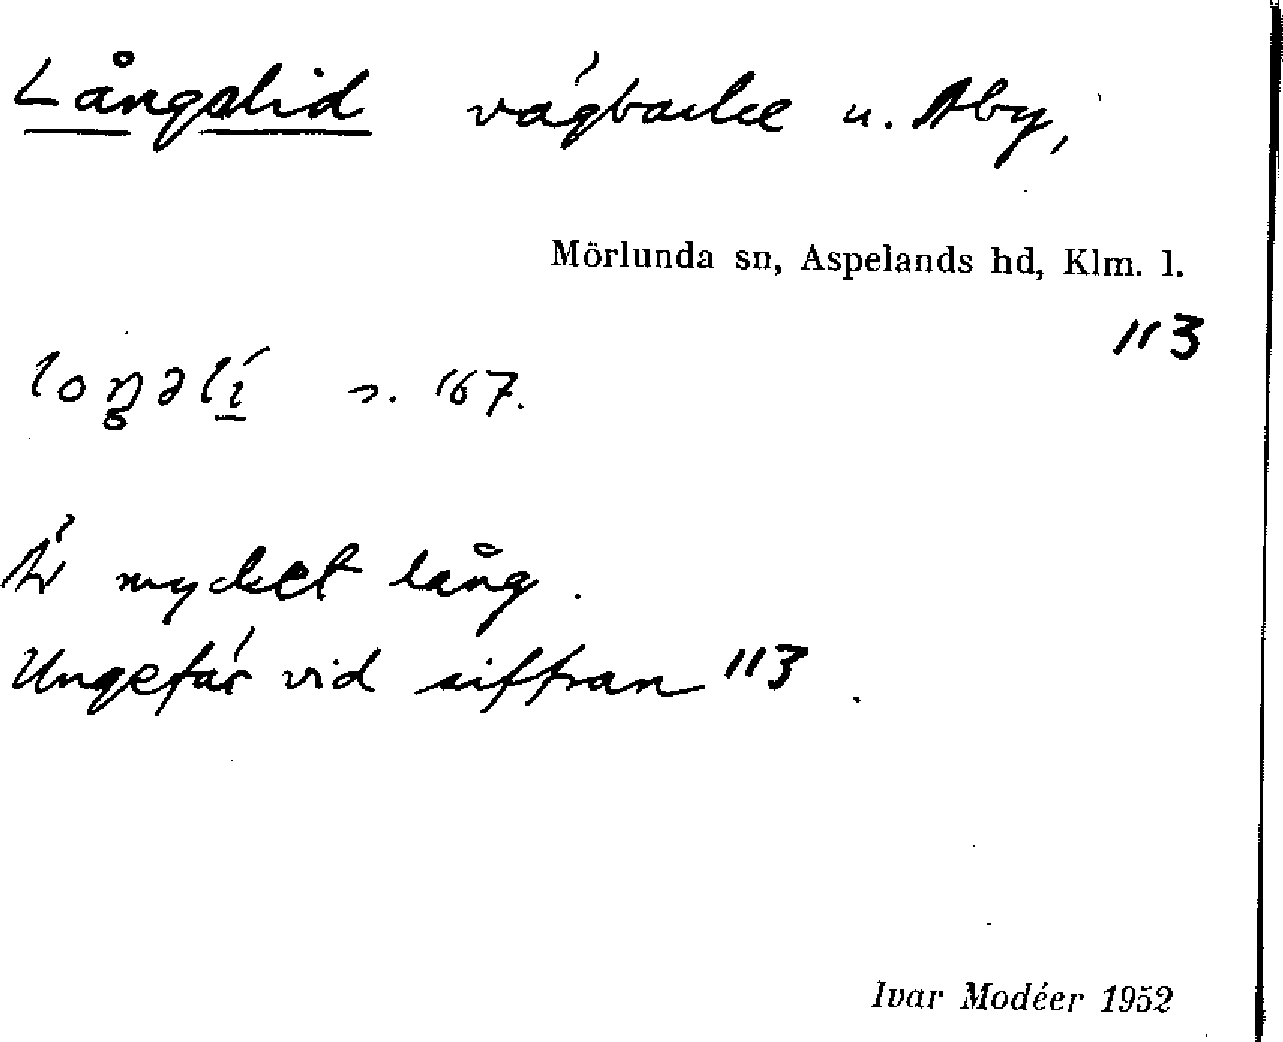 Långslid vägbacke u. Åby,
Mörlunda sn, Aspelands hd, Klm. l.
113
loŋəlí s. 167.
Är mycket lång.
Ungefär vid siffran 113.
Ivar Modéer 1952